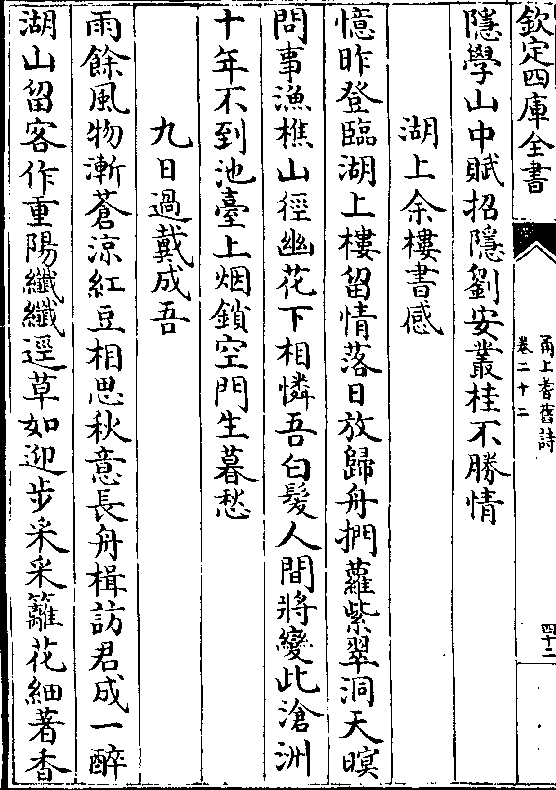 欽定四庫全書
甬上耆舊詩
卷二十二
四十二
隱學山中賦招隱劉安叢桂不勝情
湖上余樓書感
憶昨登臨湖上樓留情落日放歸舟捫蘿紫翠洞天暝
問事漁樵山徑幽花下相憐吾白髮人間將變此滄洲
十年不到池臺上烟鎖空門生暮愁
九日過戴成吾
雨餘風物漸蒼涼紅豆相思秋意長舟楫訪君成一醉
湖山留客作重陽纖纖逕草如迎步采采籬花細著香